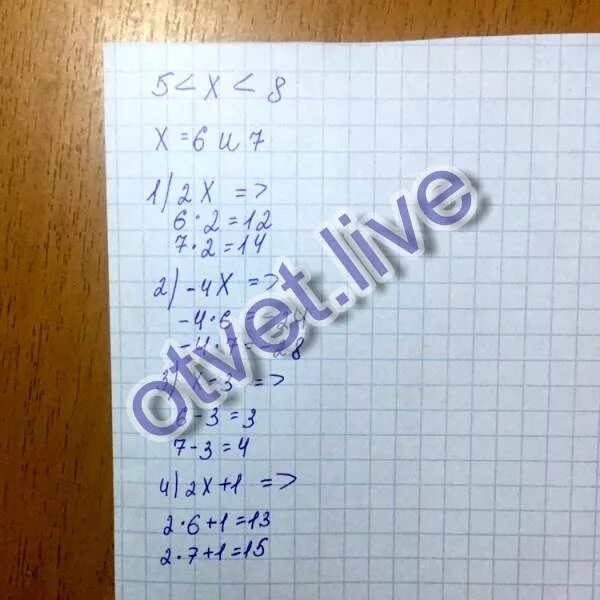 5 < X < 8
X = 6 и 7
1) 2X =>
6 · 2 = 12
7 · 2 = 14
2) -4X =>
-4 · 6 = -24
-4 · 7 = -28
3) X - 3 =>
6 - 3 = 3
7 - 3 = 4
4) 2X + 1 =>
2 · 6 + 1 = 13
2 · 7 + 1 = 15
otvet.live